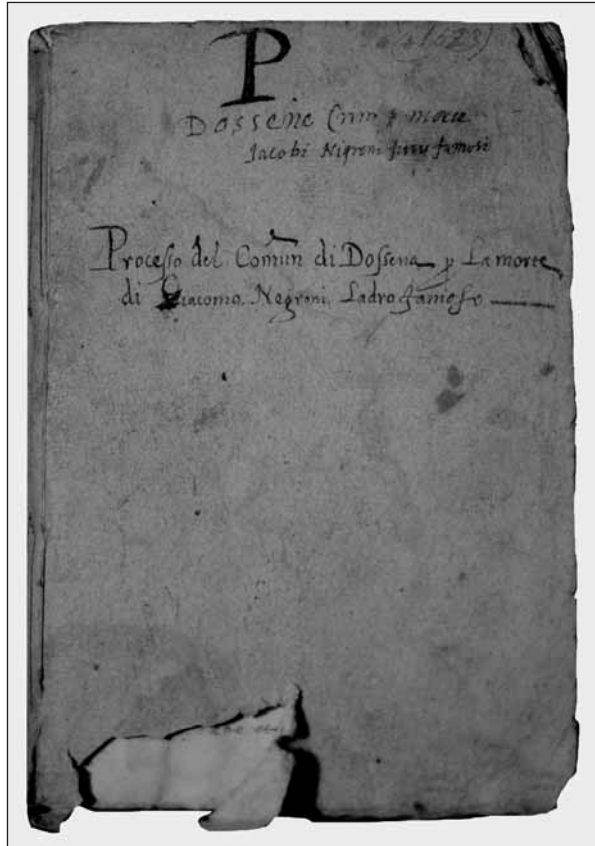 (1623)
P
Dossene Crim p morte
Jacobi Nigroni furis famosi
Processo del Comun di Dossena p La morte
di Giacomo Negroni Ladro famoso